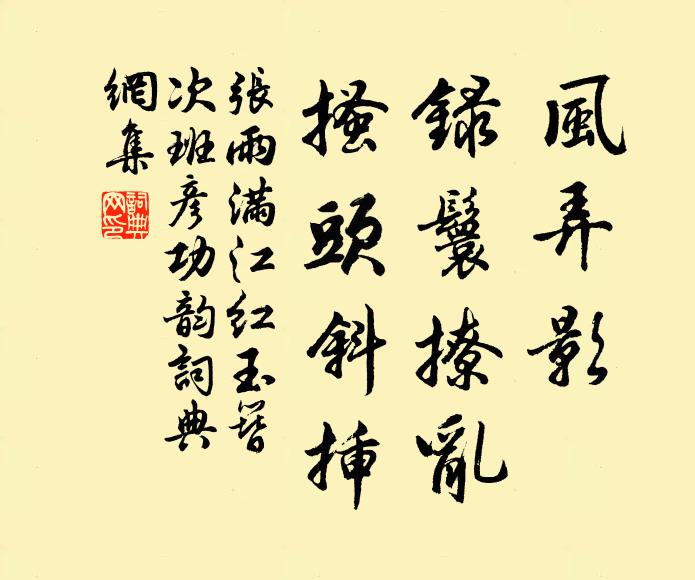 風弄影
録鬟撩亂
搔頭斜揷
張雨滿江紅玉簪
次班彦功韵詞典
網集
詞典
网印